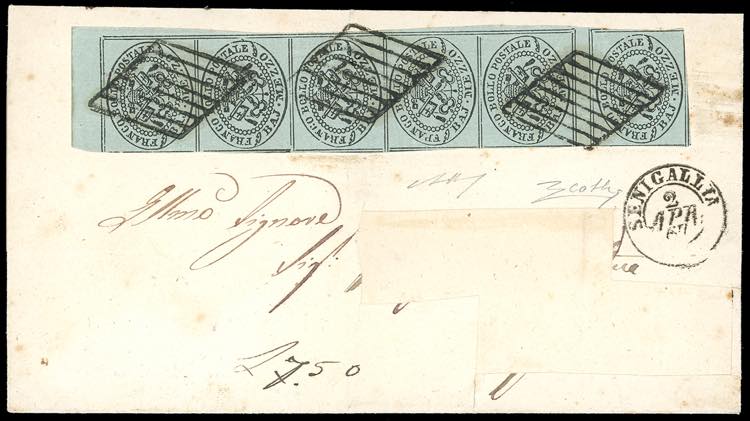 FRANCO BOLLO POSTALE MEZZO BAJ
FRANCO BOLLO POSTALE MEZZO BAJ
FRANCO BOLLO POSTALE MEZZO BAJ
FRANCO BOLLO POSTALE MEZZO BAJ
FRANCO BOLLO POSTALE MEZZO BAJ
FRANCO BOLLO POSTALE MEZZO BAJ
SENIGALLIA
2
APR
Illmo Signore
Sigr
7.50